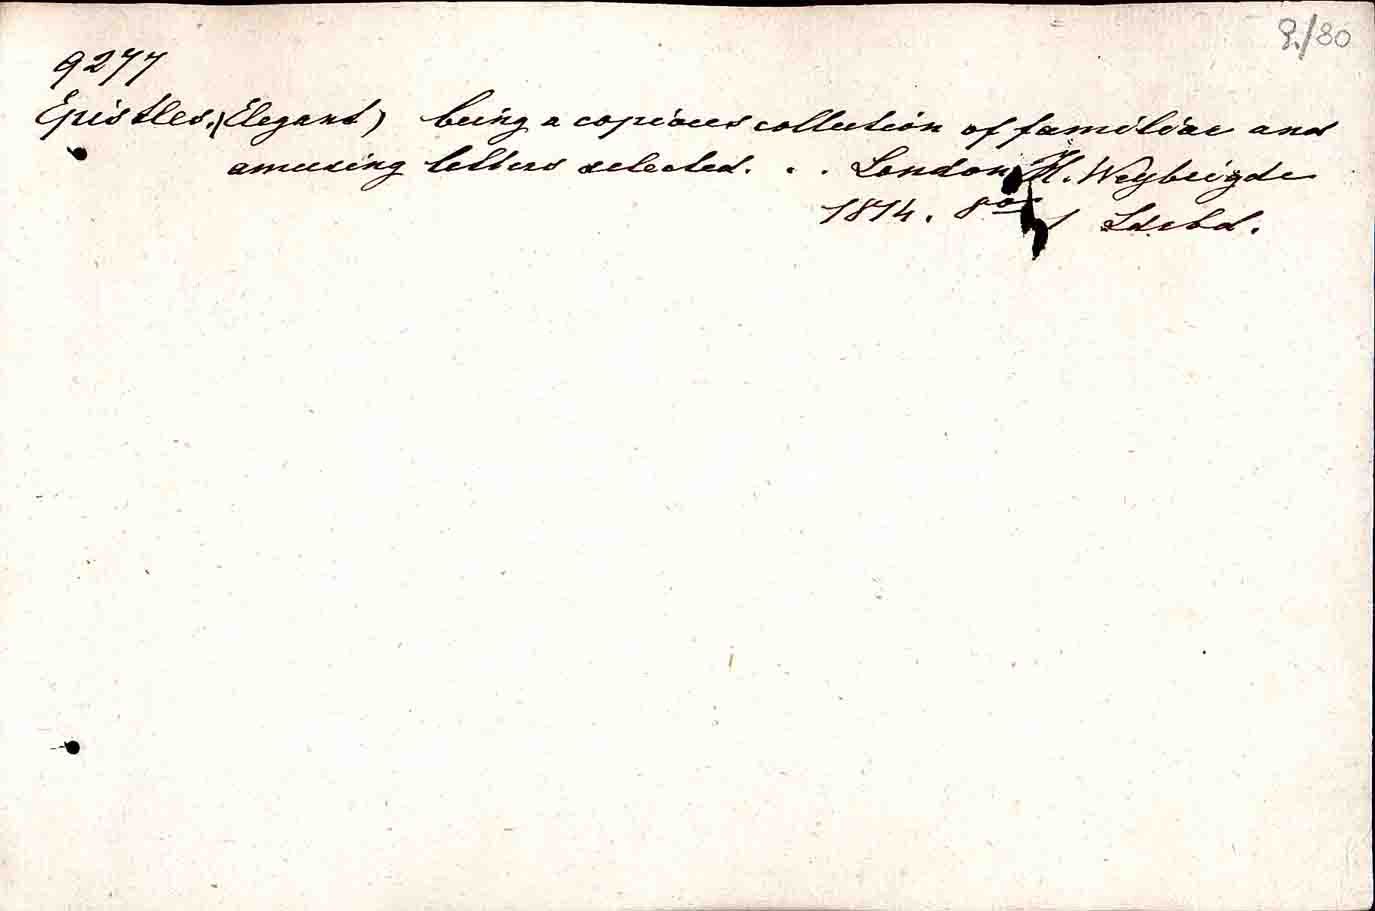 8./80
9277
Epistles, (Elegant) being a copious collection of familiar and
amusing letters selected. . . London, H. Weybrigde
1814. 8o 1 Ldrbd.